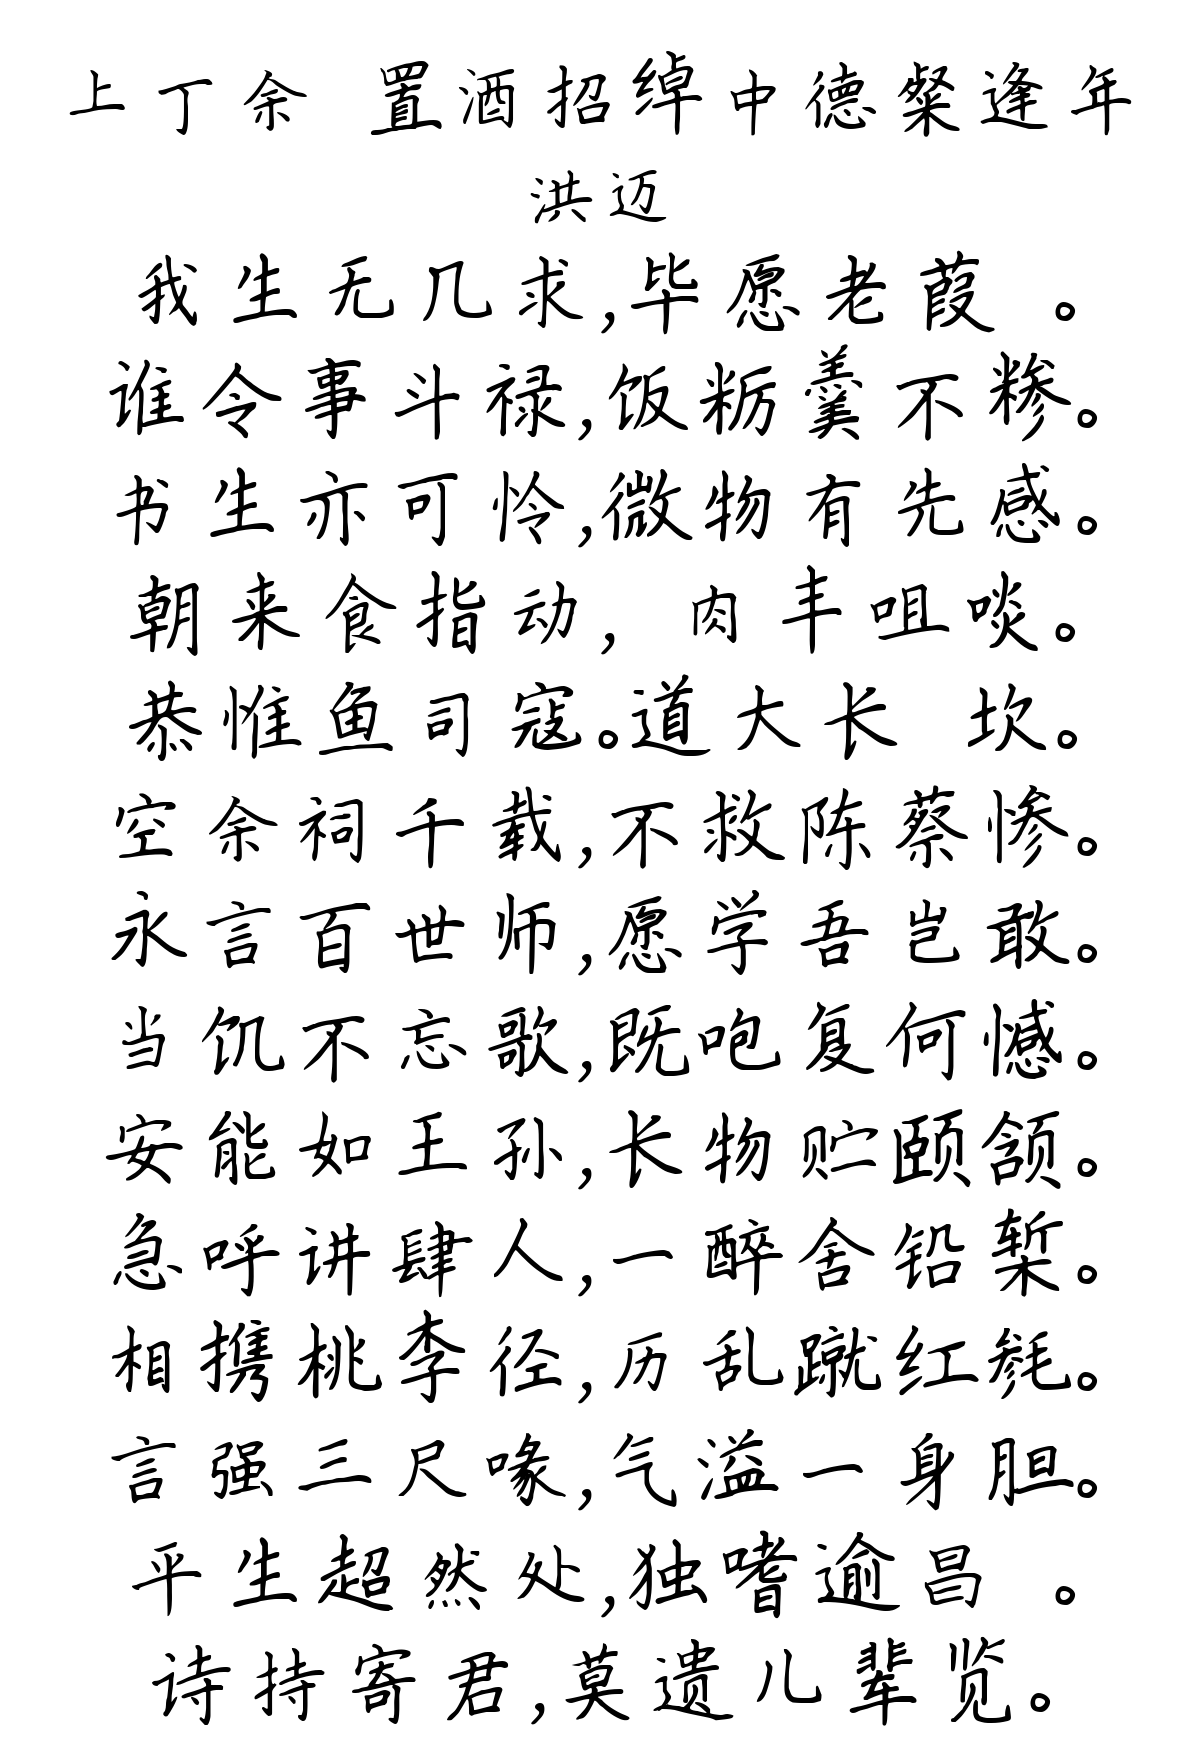 上丁余 置酒招绰中德粲逢年
洪迈
我生无几求,毕愿老葭 。
谁令事斗禄,饭粝羹不糁。
书生亦可怜,微物有先感。
朝来食指动，肉丰咀啖。
恭惟鱼司寇。道大长 坎。
空余祠千载,不救陈蔡惨。
永言百世师,愿学吾岂敢。
当饥不忘歌,既咆复何憾。
安能如王孙,长物贮颐颔。
急呼讲肆人,一醉舍铅椠。
相携桃李径,历乱蹴红毵。
言强三尺喙,气溢一身胆。
平生超然处,独嗜逾昌 。
诗持寄君,莫遗儿辈览。